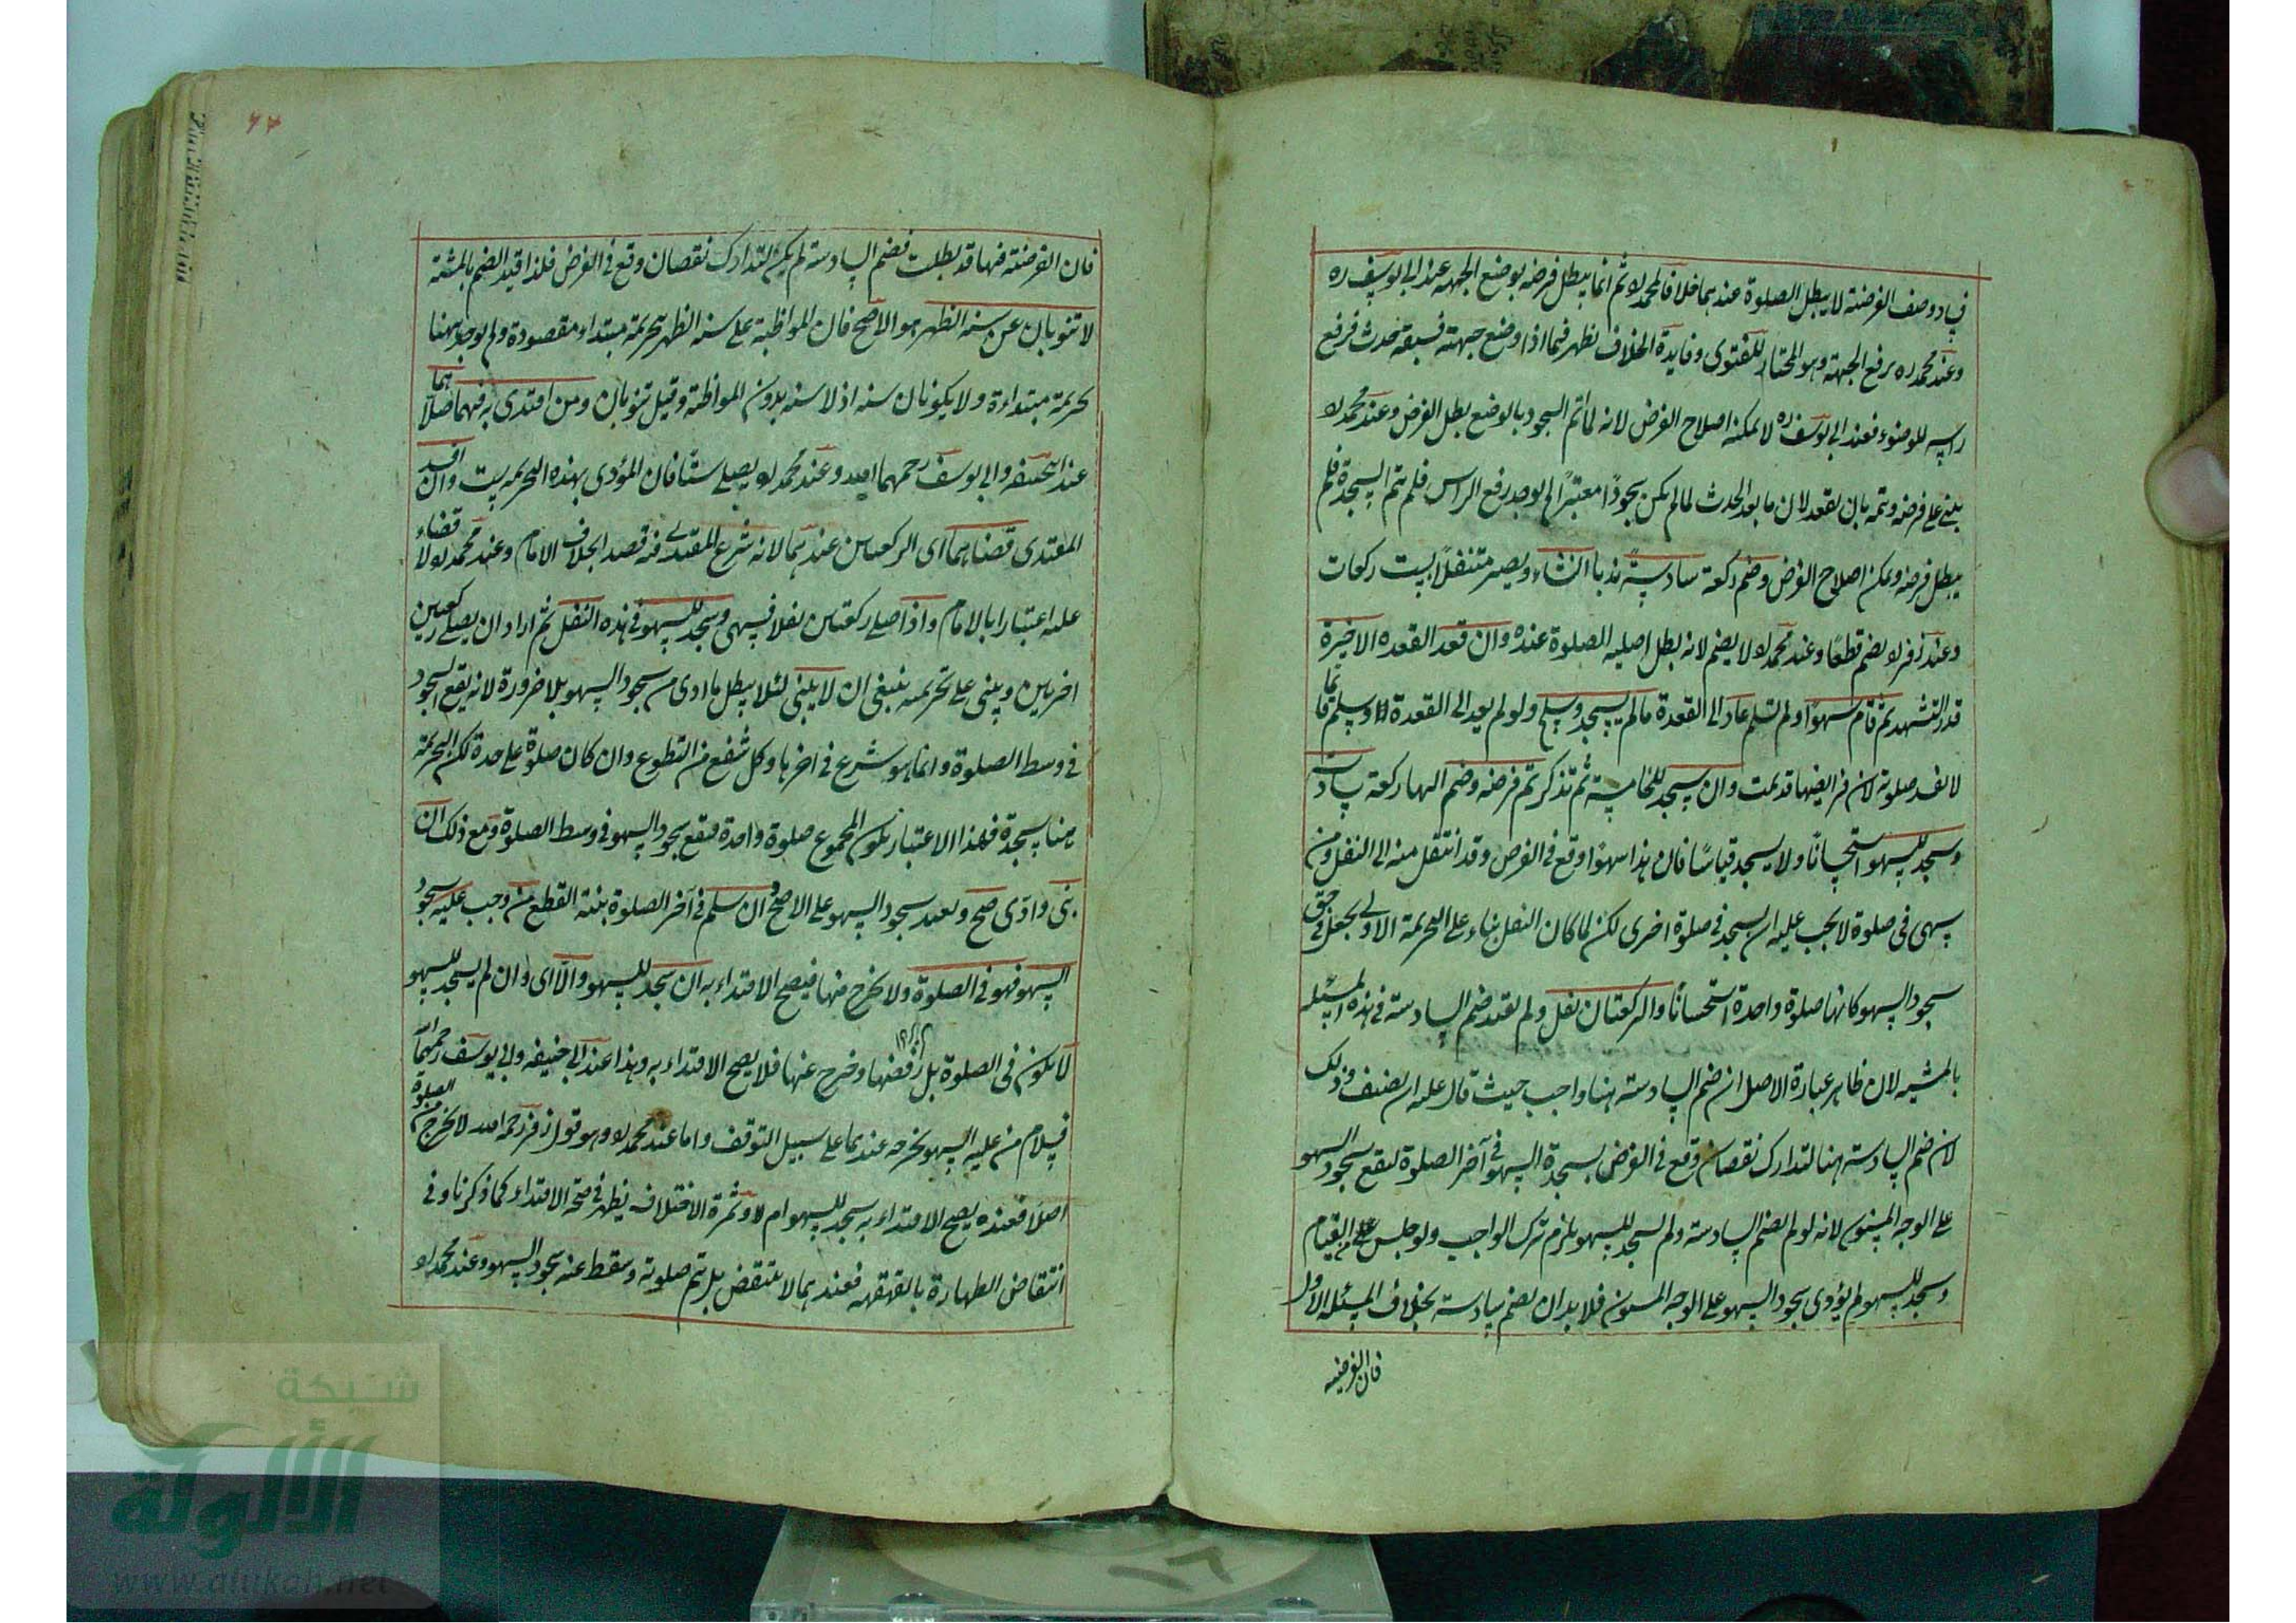 فساد وصف الفرضية لا يبطل الصلوة عندهما خلافا لمحمد ره ثم انما يبطل فرضه بوضع الجبهة عند ابي يوسف ره
وعند محمد ره برفع الجبهة وهو المختار للفتوى وفايدة الخلاف يظهر فيما اذا وضع جبهته فسبقه حدث فرفع
راسه للوضوء فعند ابي يوسف ره لا يمكنه اصلاح الفرض لانه لما تم السجود بالوضع بطل الفرض وعند محمد ره
يبني على فرضه وتمه بان يقعد لان ما بعد الحدث لما لم يكن سجودًا معتبرًا لم يوجد رفع الراس فلم يتم السجدة فلم
يبطل فرضه ويمكن اصلاح الفرض وضم ركعة سادسةً ندبا ان شاء ويصير متنفلًا بست ركعات
وعند زفر ره لا يضم قطعًا وعند محمد ره لا يضم لانه بطل اصلية الصلوة عنده وان قعد القعدة الاخيرة
قدر التشهد ثم قام سهوًا ولم يسلم عاد الى القعدة ما لم يسجد وسلم ولو لم يعد الى القعدة وسلم قائما
لا تفسد صلوته لان فرايضها قد تمت وان سجد للخامسة ثم تذكر تم فرضه وضم اليها ركعة سادسة
وسجد للسهو استحسانًا ولا يسجد قياسًا فان هذا سهو وقع في الفرض وقد انتقل منه الى النفل ومن
سهى في صلوة لا يجب عليه ان يسجد في صلوة اخرى لكن لما كان النفل بناء على التحريمة الاولى يجعل في حق
سجود السهو كانها صلوة واحدة استحسانًا والركعتان نفل ولم يقيد ضم السادسة في هذه المسئلة
بالمشية لان ظاهر عبارة الاصل ان ضم السادسة ههنا واجب حيث قال عليه ان يضيف وذلك
لان ضم السادسة ههنا لتدارك نقصان وقع في الفرض بسجدة السهو في آخر الصلوة ليقع سجود السهو
على الوجه المسنون لانه لو لم يضم السادسة ولم يسجد للسهو يلزم ترك الواجب ولو جلس على القيام
وسجد للسهو لم يؤدى سجود السهو على الوجه المسنون فلا بد ان يضم سادسة بخلاف المسئلة الاول
فان الفرضية
٦٢
فان الفرضية فيها قد بطلت فضم السادسة لم يكن لتدارك نقصان وقع في الفرض فلذا قيد الضم بالمشية
لا تنوبان عن سنة الظهر هو الاصح فان المواظبة على سنة الظهر بتحريمة مبتداءة مقصودة ولم يوجد ههنا
تحريمة مبتداءة ولا يكونان سنة اذ لا سنة بدون المواظبة وقيل تنوبان ومن اقتدى به فيهما صلاهما
عند ابي حنيفة وابي يوسف رحمهما الله وعند محمد ره يصلي ستًا فان المؤدى بهذه التحريمة ست وان افسد
المقتدى قضاهما اى الركعتين عندهما لانه شرع المقتدى فيه قصدا بخلاف الامام وعند محمد ره لا قضاء
عليه اعتبارا بالامام واذا صلى ركعتين نفلا فسهى وسجد للسهو في هذه النفل ثم اراد ان يصلي ركعتين
اخريين ويبني على تحريمته ينبغي ان لا يبنى لئلا يبطل ما ادى من سجود السهو بلا ضرورة لانه يقع السجود
في وسط الصلوة وانما هو شرع في اخرها وكل شفع من التطوع وان كان صلوة على حدة لكن التحريمة
هنا سجدة فلهذا الاعتبار يكون المجموع صلوة واحدة فيقع سجود السهو في وسط الصلوة ومع ذلك ان
بنى وادى صح ويعيد سجود السهو على الاصح وان سلم في آخر الصلوة بنية القطع من وجب عليه سجود
السهو فهو في الصلوة ولا يخرج منها فيصح الاقتداء به ان سجد للسهو والا اى وان لم يسجد للسهو
لا يكون في الصلوة بل رفضها وخرج عنها فلا يصح الاقتداء به وهذا عند ابي حنيفة وابي يوسف رحمهما الله
فسلام من عليه السهو يخرجه عندهما على سبيل التوقف واما عند محمد ره وهو قول زفر رحمه الله لا يخرج من الصلوة
اصلًا فعنده يصح الاقتداء به سجد للسهو ام لا وثمرة الاختلاف يظهر في صحة الاقتداء كما ذكرنا وفي
انتقاض الطهارة بالقهقهة فعندهما لا ينتقض بل تم صلوته وسقط عنه سجود السهو وعند محمد ره
شبكة
الألوكة
www.alukah.net